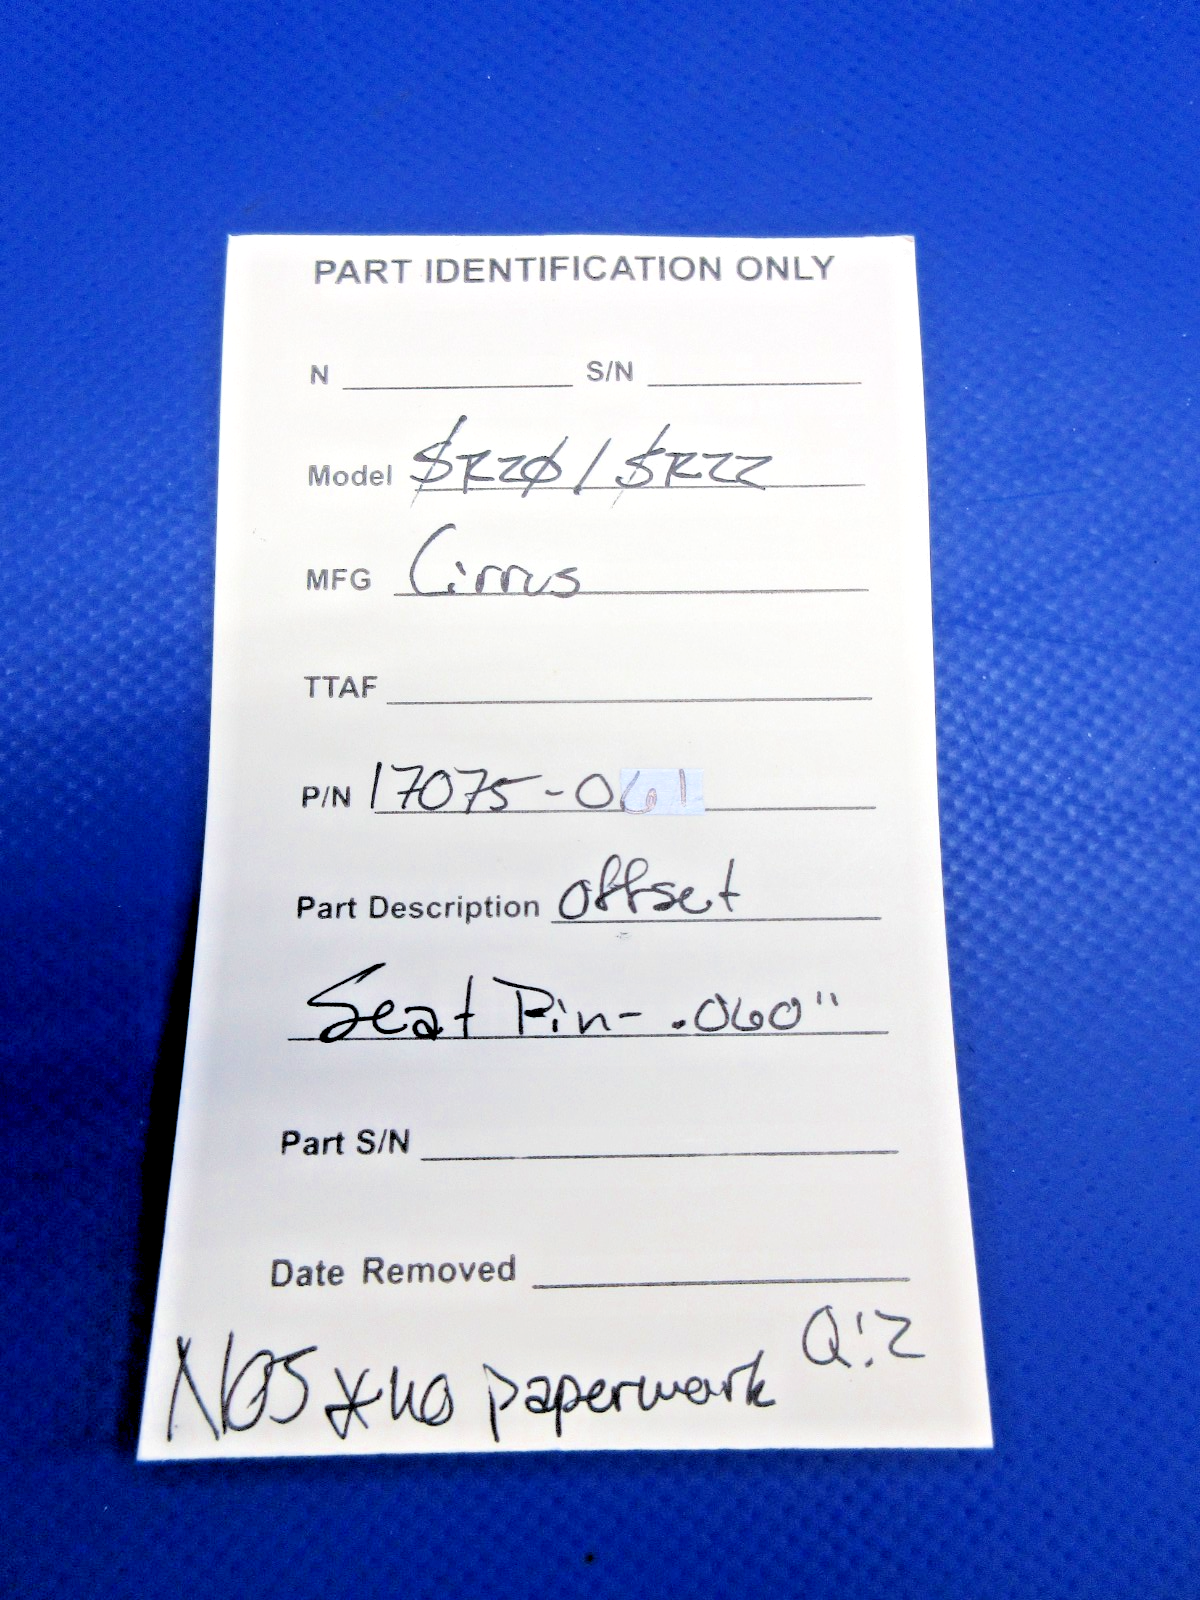 PART IDENTIFICATION ONLY
N ____________ S/N ____________
Model SR20/SR22
MFG Cirrus
TTAF ____________
P/N 17075-061
Part Description offset
Seat Pin- .060"
Part S/N ____________
Date Removed ____________
Q:2
NOS *no paperwork